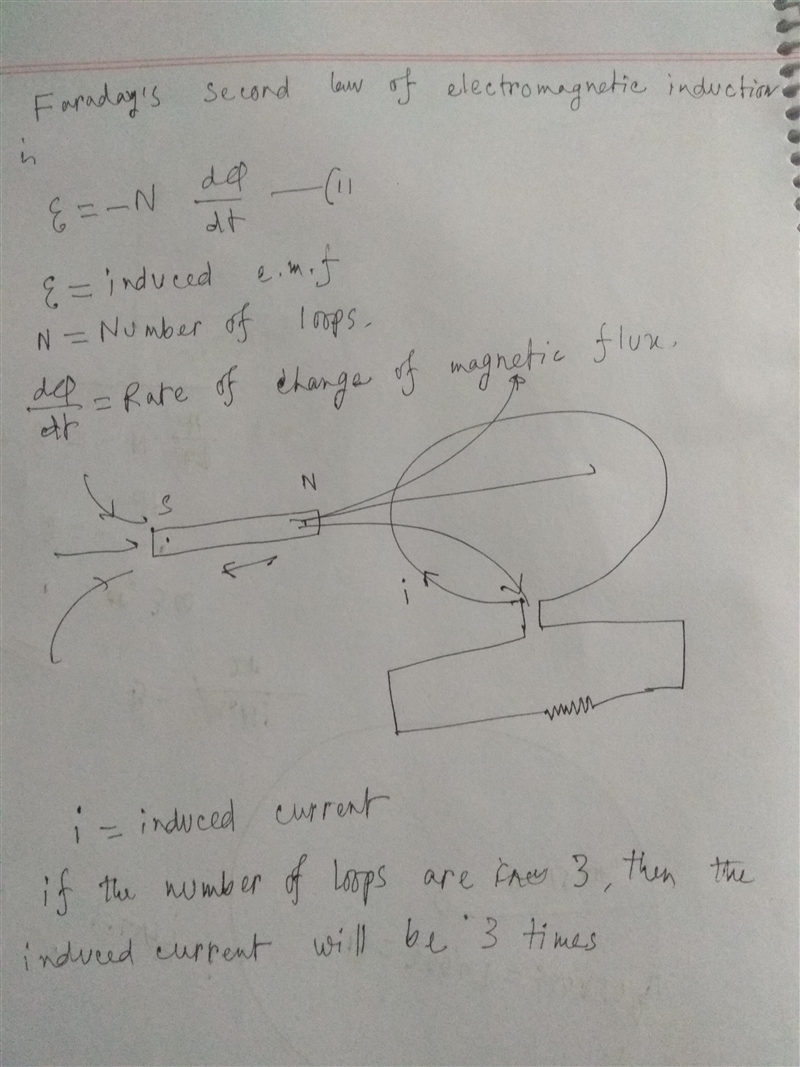 Faraday's second law of electromagnetic induction
is
ε = -N dφ/dt —(1)
ε = induced e.m.f
N = Number of loops.
dφ/dt = Rate of change of magnetic flux.
S N
i
i = induced current
if the number of loops are 3, then the
induced current will be 3 times